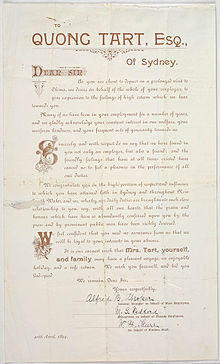 TO
QUONG TART, ESQ.,
Of Sydney.
DEAR SIR
As you are about to depart on a prolonged visit to
China, we desire on behalf of the whole of your employes, to
give expression to the feelings of high esteem which we bear
towards you.
Many of us have been in your employment for a number of years,
and we gladly acknowledge your constant interest in our welfare, your
uniform kindness, and your frequent acts of generosity towards us.
Sincerely and with respect do we say that we have found in
you not only an employer, but also a friend; and the
friendly feelings that have at all times existed have
caused us to feel a pleasure in the performance of all
our duties.
We congratulate you on the high position of respect and influence
to which you have attained both in Sydney and throughout New
South Wales, and we, whose daily duties bring us in such close
relationship to you, say with all our hearts that the praise and
honours which have been so abundantly conferred upon you by the
press and by prominent public men have been richly deserved.
We feel confident that you may rest assured that we
will be loyal to your interests in your absence.
It is our earnest wish that Mrs. Tart, yourself,
and family may have a pleasant voyage, an enjoyable
holiday, and a safe return. We wish you farewell, and bid you
God-speed.
We remain, Dear Sir,
Yours respectfully,
20th April, 1894.